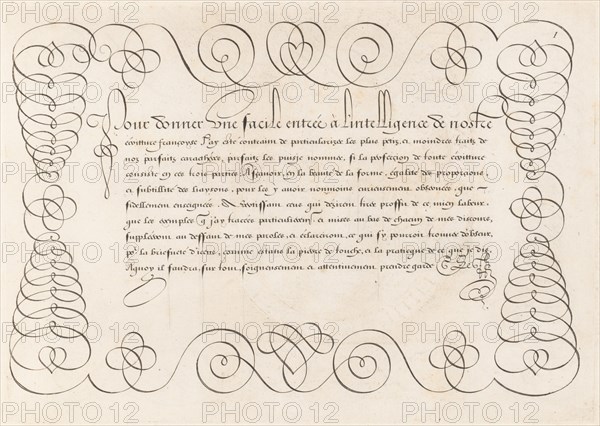 1
Pour donner une facile entrée à l'intelligence de nostre
escriture françoyse J'ay esté contraint de particularizer les plus petis, et moindres traitz de
noz parfaitz caracteres, parfaitz les puisje nommer, si la perfection de toute escriture
consiste en ces trois parties Asçavoir, en la beauté de la forme, égalité des proportions,
et subtillité des liaysons, pour les y avoir nonmoins curieusement observées, que
fidellement enseignées. Avertissant ceux qui dezirent tirer proffit de ce mien labeur,
que les exemples q̃ j'ay tracées particulieremẽt et mises au bas de chacun de mes discours,
suppléront au deffaut de mes paroles, et éclarciront, ce qui s'y pourroit trouver d'obscur,
por la briefueté d'iceux, comme estans la pierre de touche, et la pratique de ce que je dis
Aquoy il faudra, sur tout, soigneusement et attentivement prendre garde
PHOTO 12